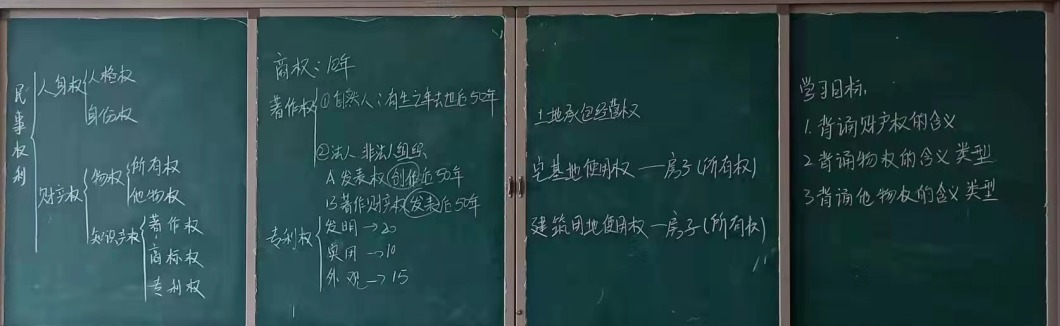 民事权利
人身权
人格权
身份权
财产权
物权
所有权
他物权
知识产权
著作权
商标权
专利权
商权：10年
著作权
①自然人：有生之年去世后50年
②法人 非法人组织
A 发表权 创作后50年
B 著作财产权 发表后50年
专利权
发明→20
实用→10
外观→15
土地承包经营权
宅基地使用权—房子(所有权)
建筑用地使用权—房子(所有权)
学习目标
1.背诵财产权的含义
2 背诵物权的含义 类型
3 背诵他物权的含义 类型